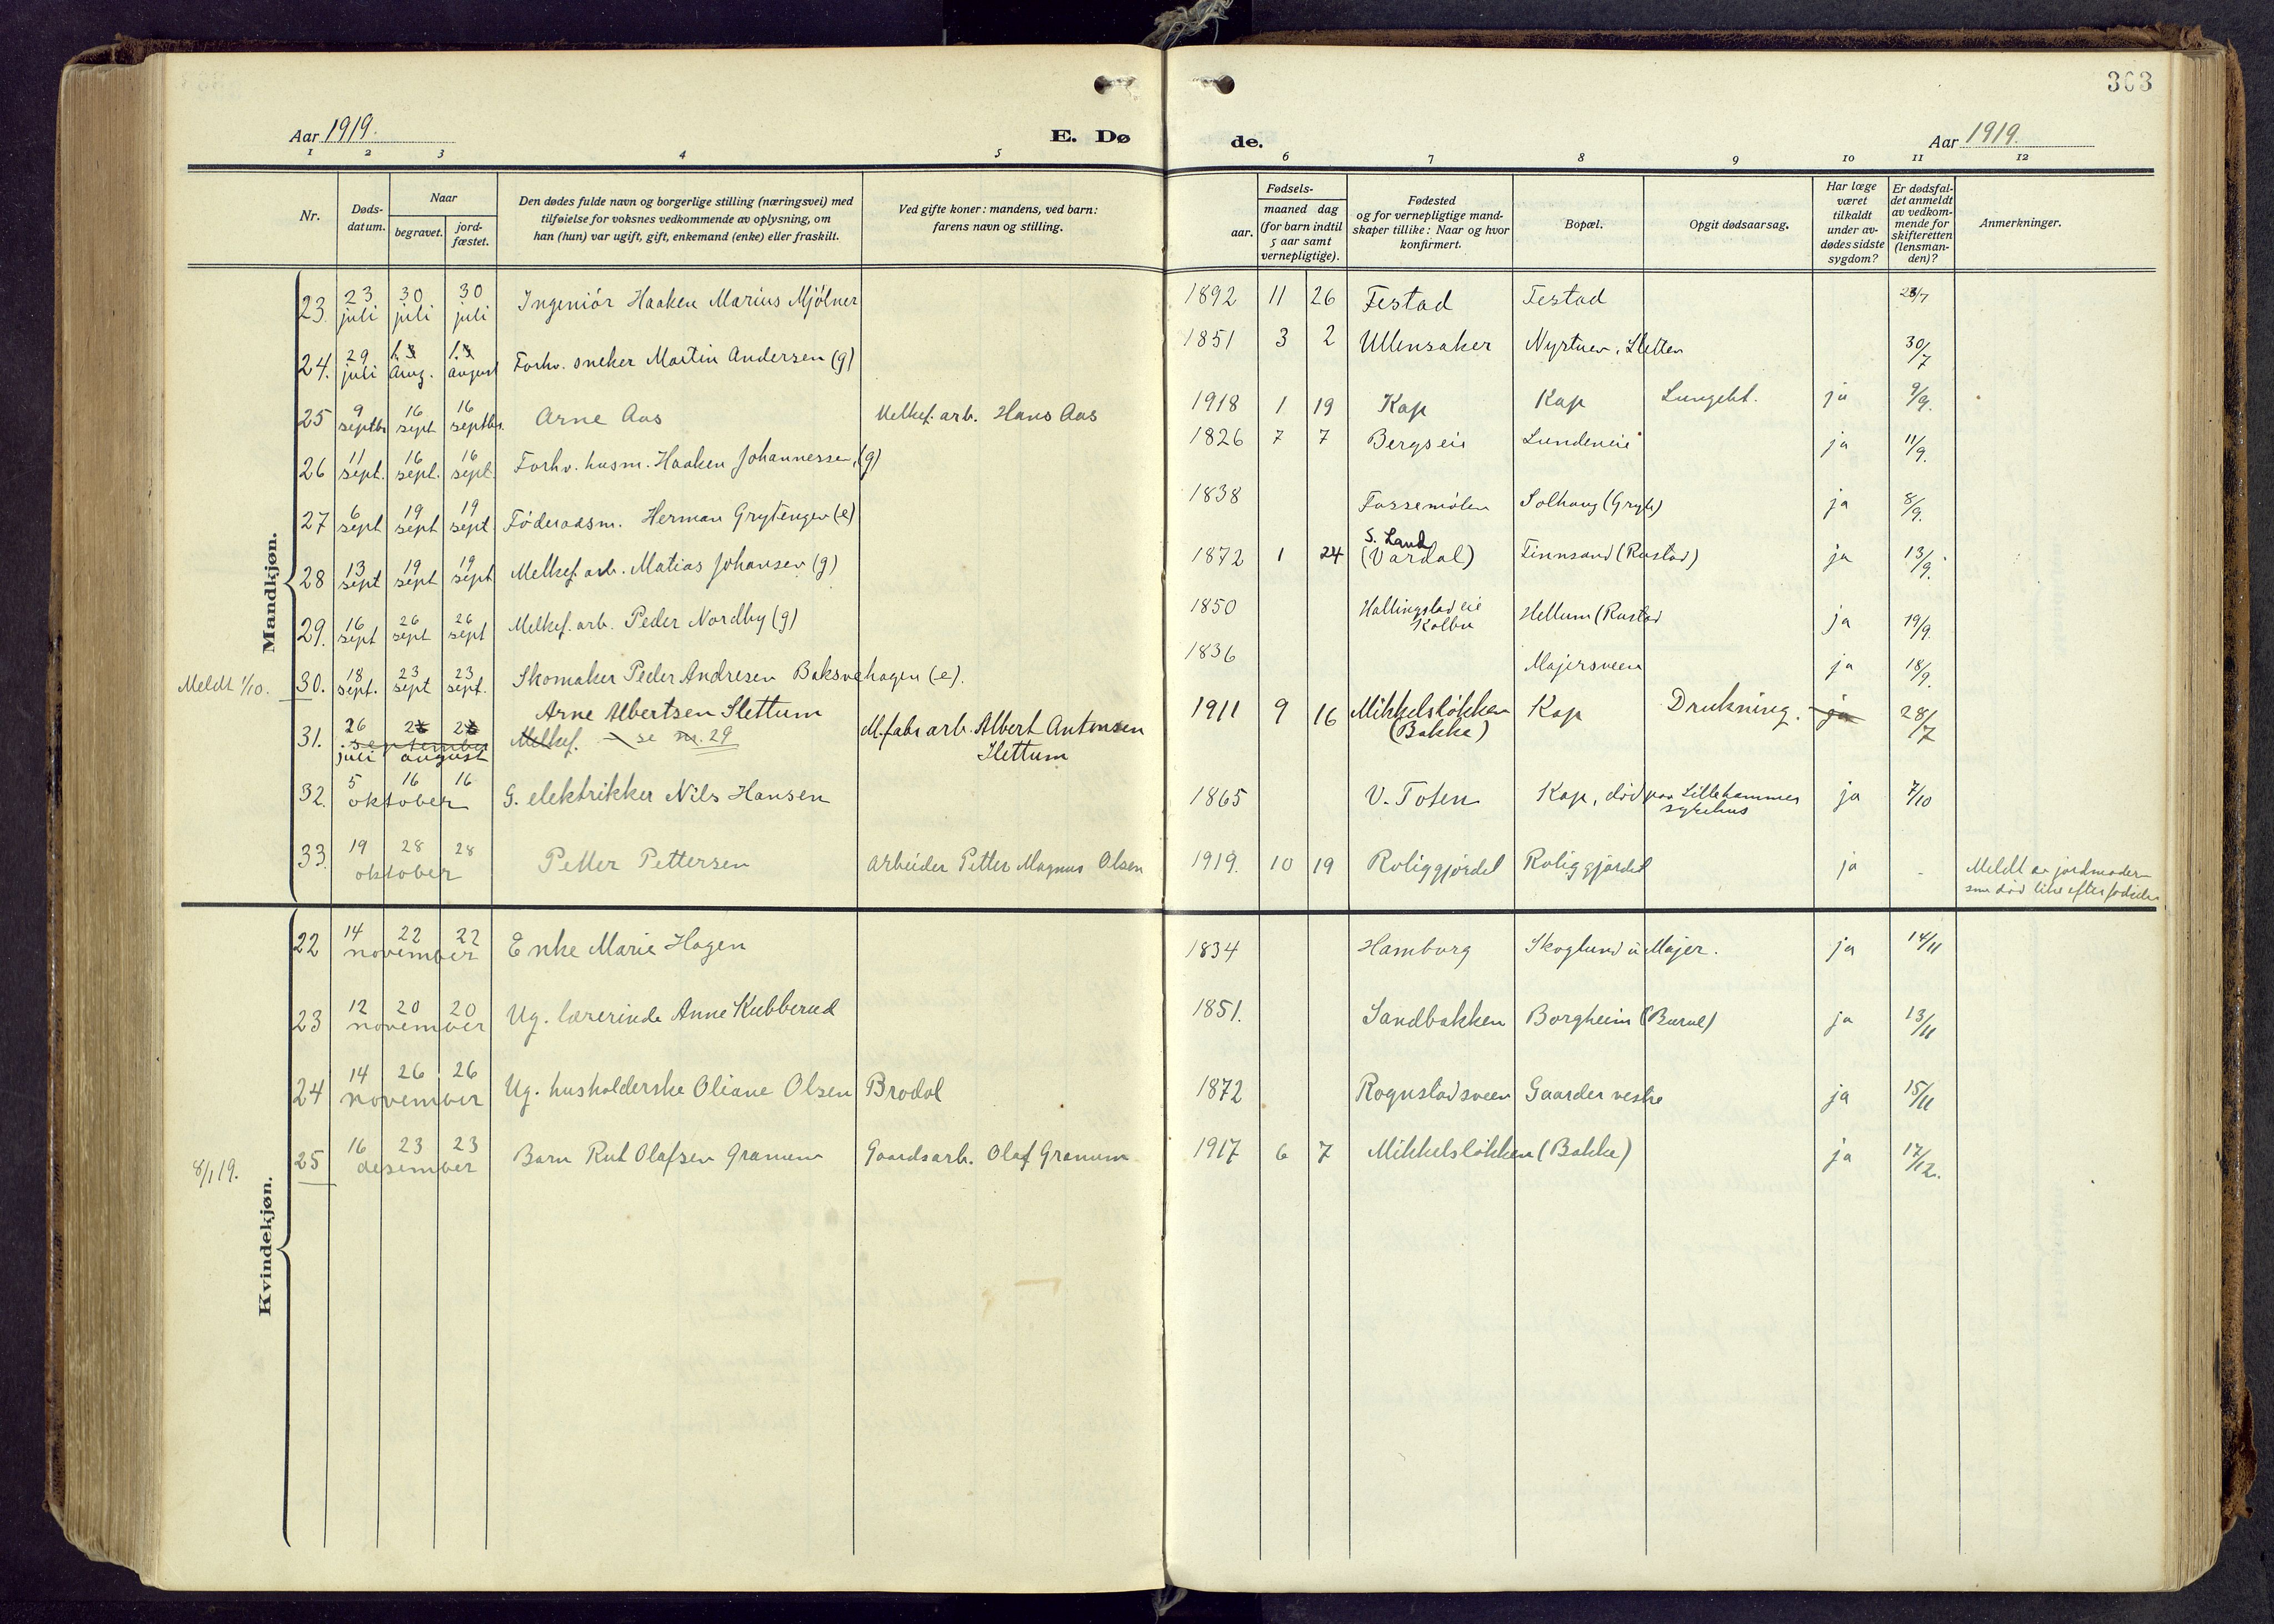 303
Aar 1919.
E. Dø
de.
Aar 1919.
1 2 3 4 5 6 7 8 9 10 11 12
Nr.
Døds-
datum.
Naar
begravet.
jord-
fæstet.
Den dødes fulde navn og borgerlige stilling (næringsvei) med
tilføielse for voksnes vedkommende av oplysning, om
han (hun) var ugift, gift, enkemand (enke) eller fraskilt.
Ved gifte koner: mandens, ved barn:
farens navn og stilling.
Fødsels-
aar.
maaned dag
(for barn indtil
5 aar samt
vernepligtige).
Fødested
og for vernepligtige mand-
skaper tillike: Naar og hvor
konfirmert.
Bopæl.
Opgit dødsaarsag.
Har læge
været
tilkaldt
under av-
dødes sidste
sygdom?
Er dødsfal-
det anmeldt
av vedkom-
mende for
skifteretten
(lensman-
den)?
Anmerkninger.
Mandkjøn.
23. 23 juli 30 juli 30 juli Ingeniör Haaken Marius Mjölner 1892 11 26 Festad Festad
24. 29 juli 1. Aug. 1. august Forhv. sneker Martin Andersen (g) 1851 3 2 Ullensaker Nystuen, Sletten 30/7
25 9 septbr 16 sept 16 septbr. Arne Aas Melkef. arb. Hans Aas 1918 1 19 Kap Kap Lungebt. ja 9/9.
26 11 sept. 16 sept. 16 sept. Forhv. husm. Haaken Johannessen, (g) 1826 7 7 Bergseie Lundeneie ja 11/9.
27 6 sept 19 sept 19 sept Föderaadsm. Herman Grytengen (e) 1838 Fossemölen Solhaug (Gryte) ja 8/9.
28 13 sept 19 sept 19 sept Melkef. arb. Matias Johansen (g) 1872 1 24 S. Land (Vardal) Finnsand (Rustad) ja 13/9.
29. 16 sept 26 sept 26 sept Melkef. arb. Peder Nordby (g) 1850 Hallingstad eie Kolbu Hellum (Rustad ja 19/9.
Meldt 1/10. 30. 18 sept. 23 sept 23 sept. Skomaker Peder Andresen Baksvehagen (e). 1836 Majersveen ja 18/9.
31. 26 september juli august Arne Albertsen Slettum
Melkef. se nr. 29 M.fabr arb. Albert Antonsen Slettum 1911 9 16 Mikkelslökken (Bakke) Kap Drukning. ja 28/7
32. 5 16 16 oktober G. elektrikker Nils Hansen 1865 V. Toten Kap, död paa Lillehammer sykehus ja 7/10
33. 19 28 28 oktober Petter Pettersen Arbeider Petter Magnus Olsen 1919. 10 19 Roliggjördet Roliggjördet ja - Meldt av jordmoder
som död like efter födselen.
Kvindekjøn.
22 14 22 22 november Enke Marie Hagen 1834 Hamborg Skoglund u. Majer. ja 14/11
23 12 20 20 november Ug. lærerinde Anne Kubberud 1851. Sandbakken Borgheim ja 13/11
24 14 26 26 november Ug. husholderske Oliane Olsen Brodal 1872 Rognstadsveen Gaarder vestre ja 15/11
8/1 19. 25 16 23 23 desember Barn Rut Olafsen Granum Gaardsarb. Olaf Granum 1917 6 7 Mikkelslökken (Bakke) ja 17/12.